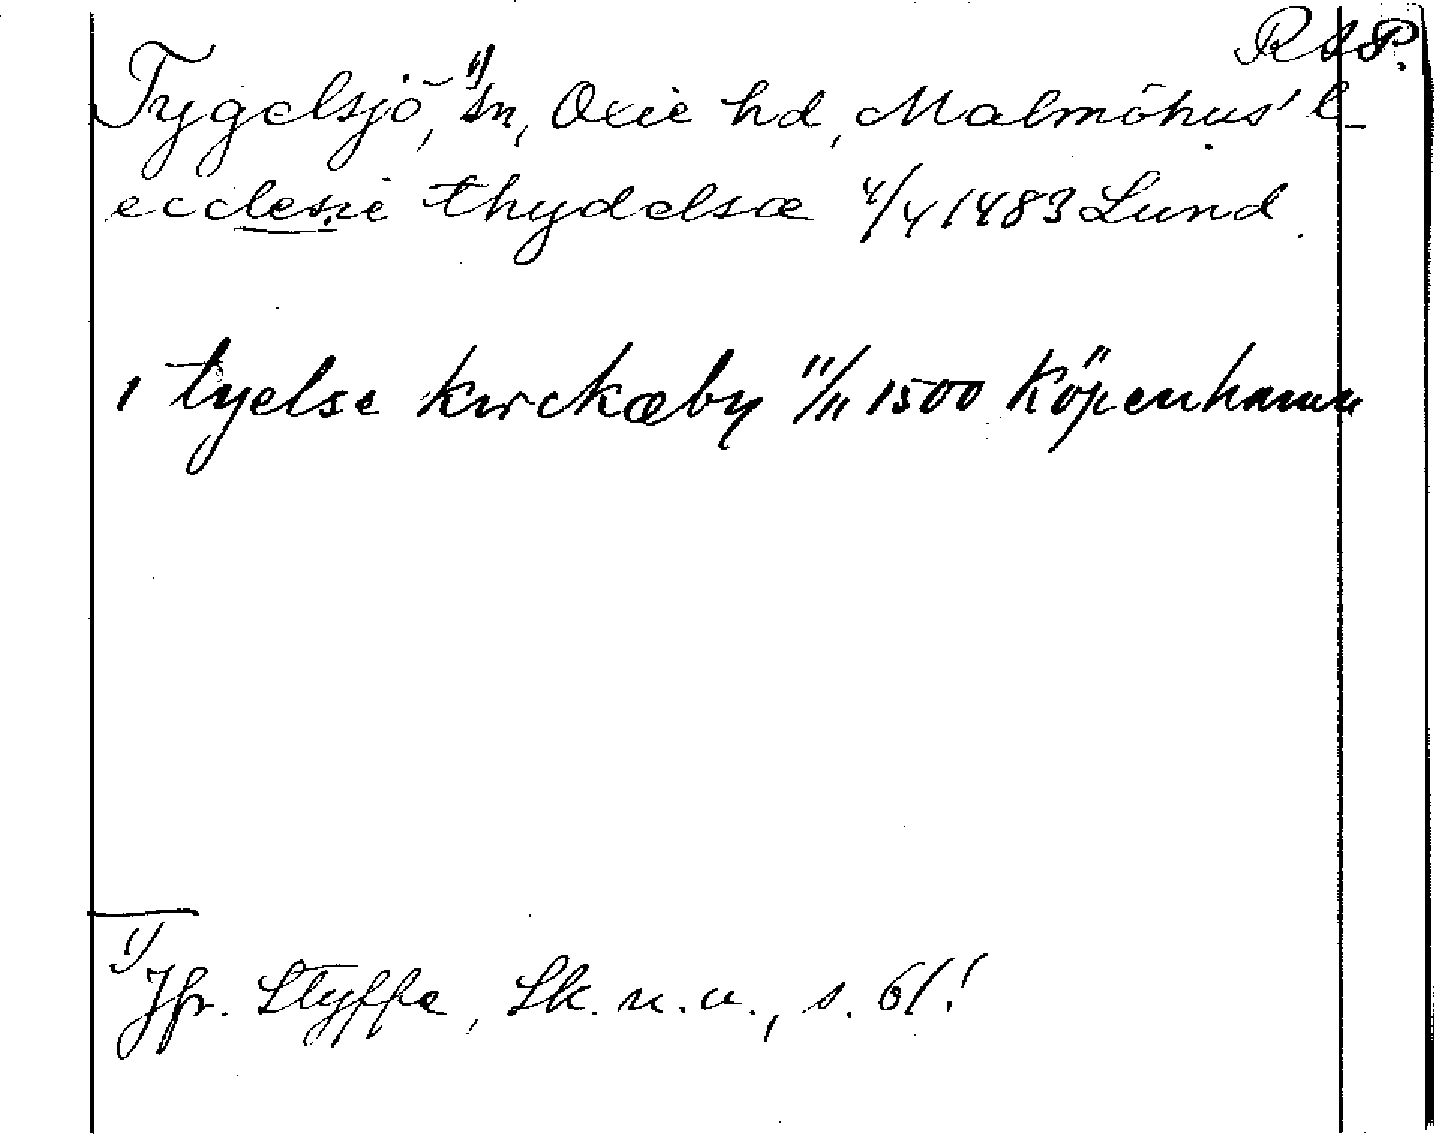 RAP.
Tygelsjö,¹⁾ sn, Oxie hd, Malmöhus' l
ecclesie thydelsæ 4/4 1483 Lund.
i tyelse kirckæby 11/11 1500 Köpenhamn
1) Jfr. Styffe, Sk. u. u., s. 61!